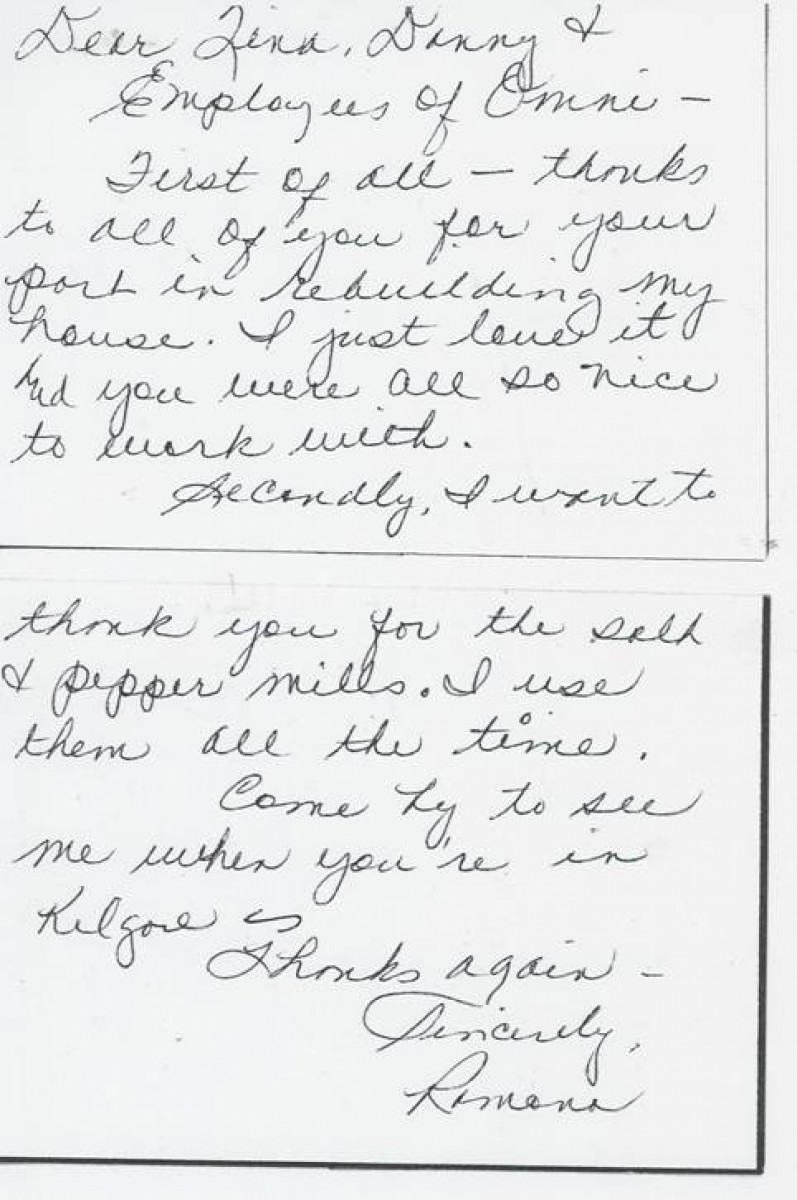 Dear Tina, Danny &
Employees of Omni —
First of all — thanks
to all of you for your
part in rebuilding my
house. I just love it
And you were all so nice
to work with.
Secondly, I want to
thank you for the salt
& pepper mills. I use
them all the time.
Come by to see
me when you're in
Kilgore
Thanks again —
Sincerely,
Ramona